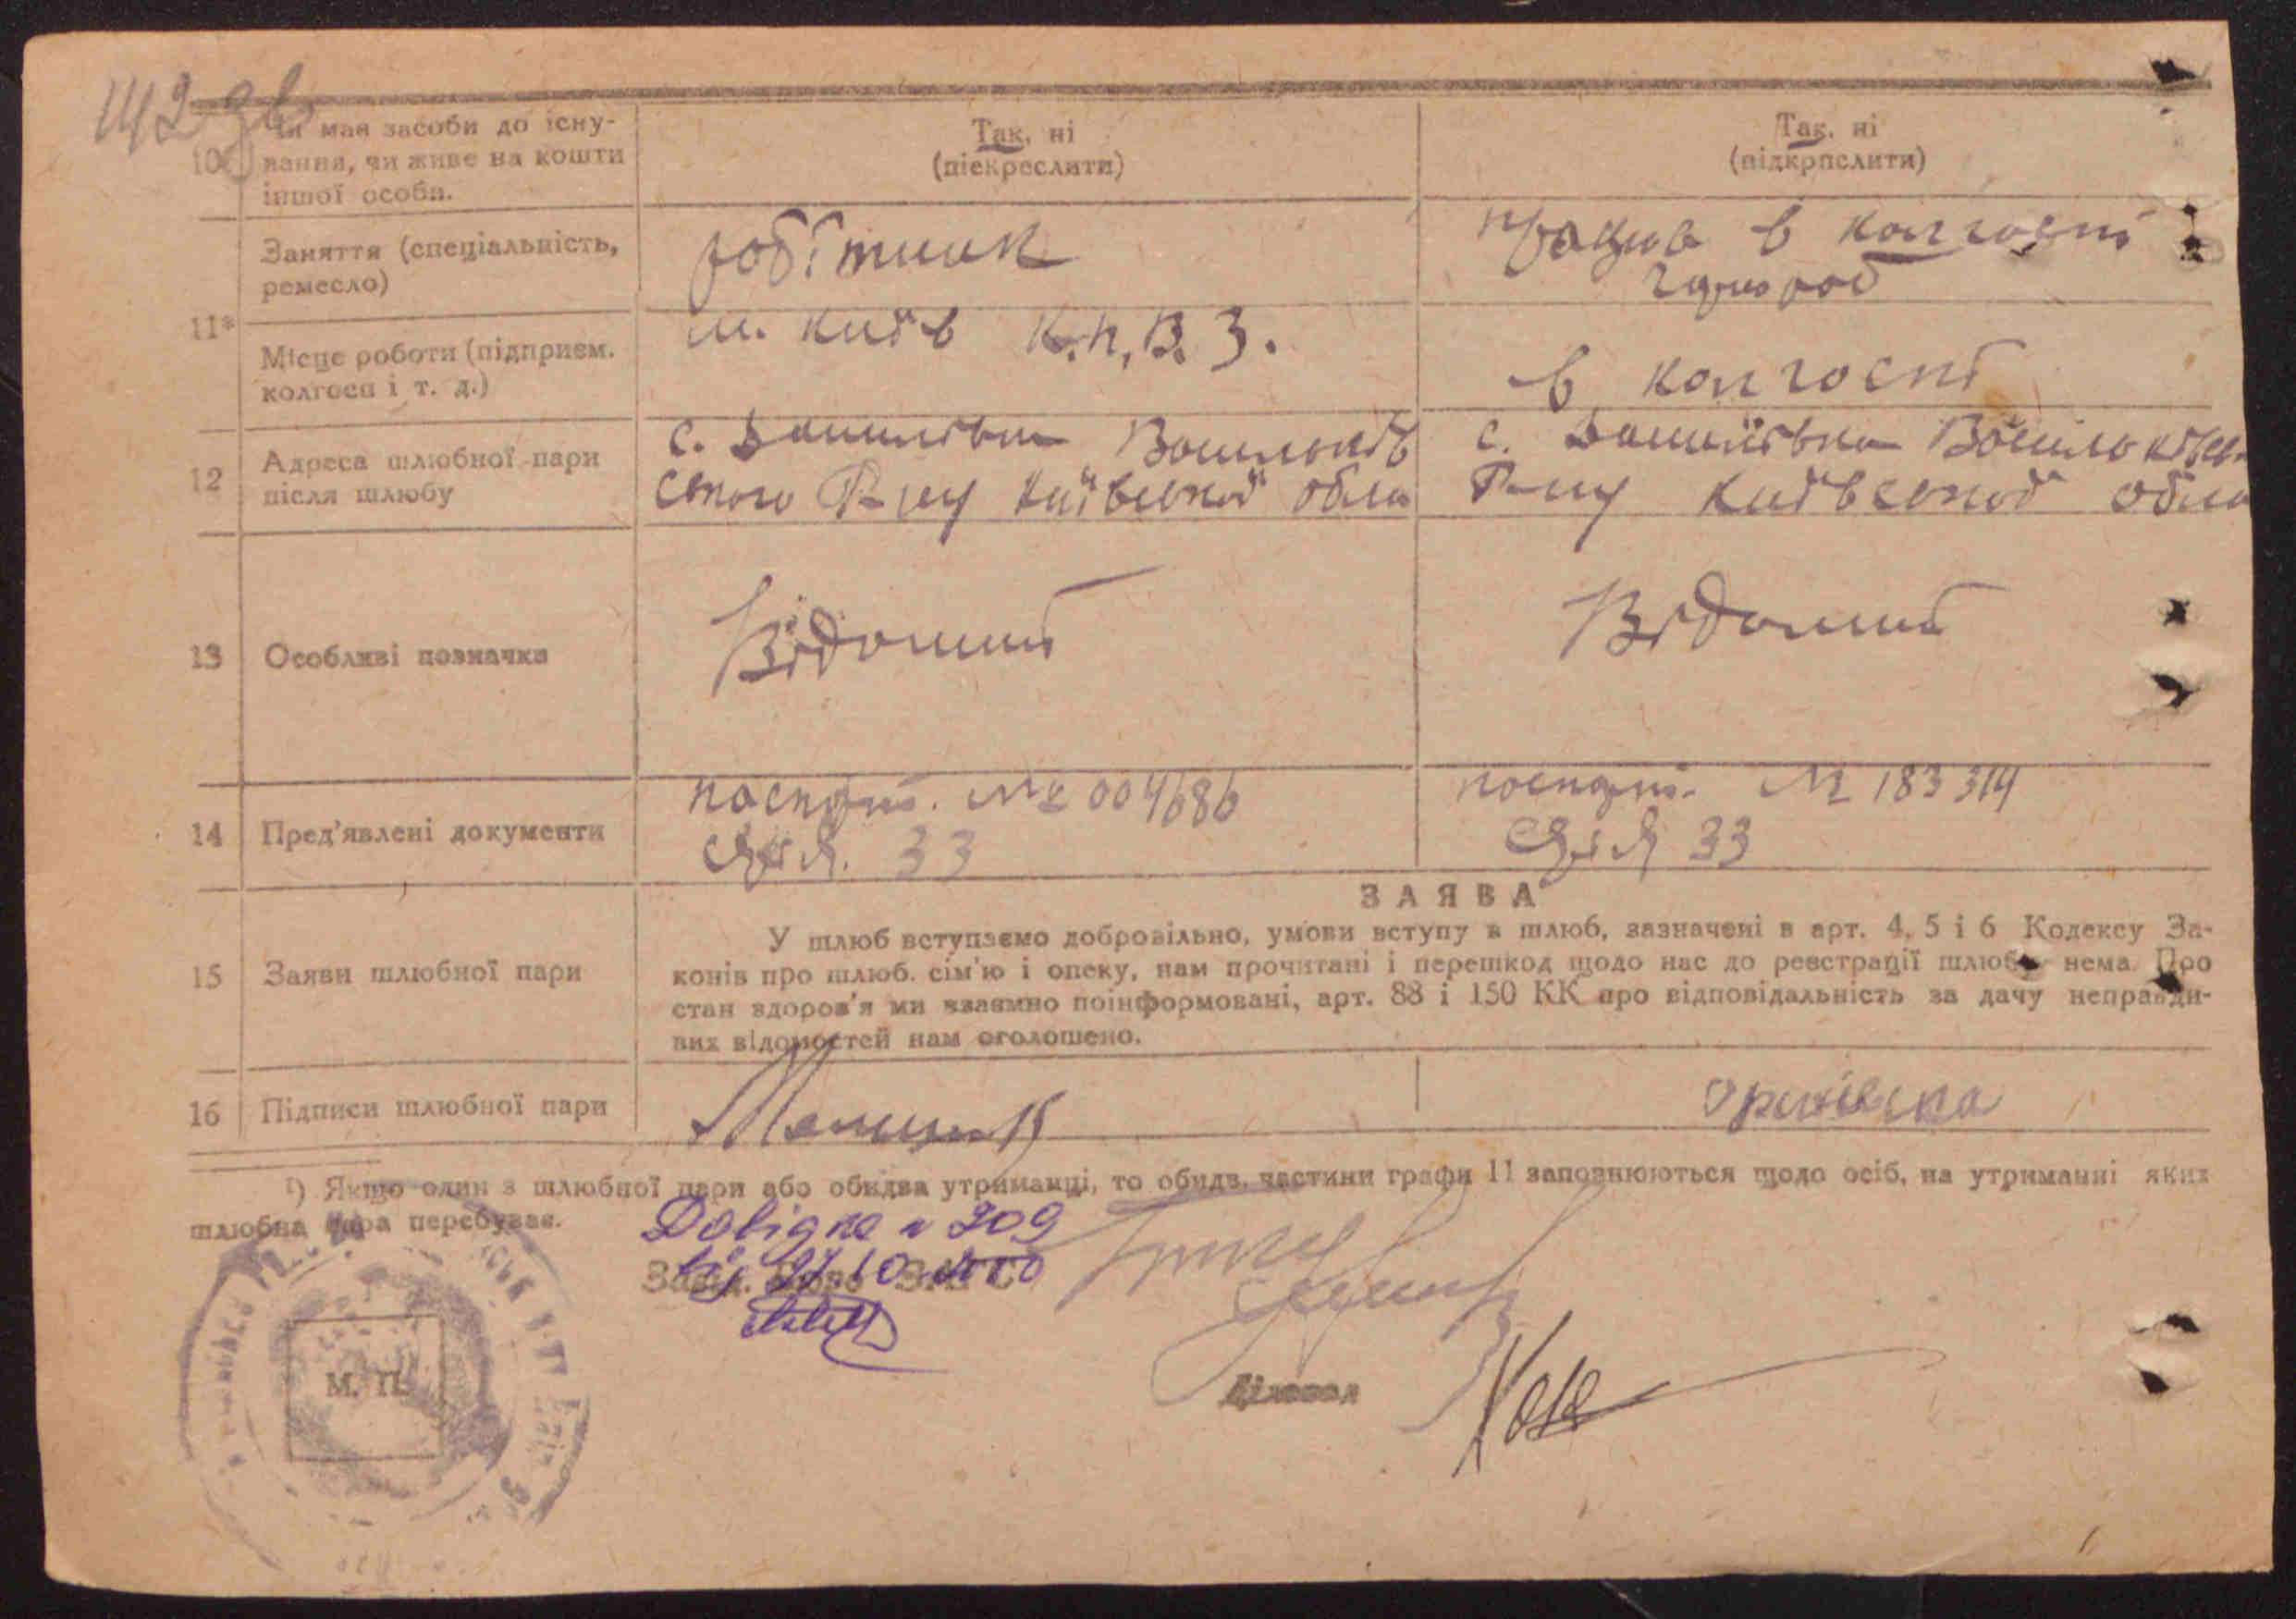 142 зв
10 Чи має засоби до існу-
вання, чи живе на кошти
іншої особи.
Так, ні
(піскреслити)
Так, ні
(підкрпслити)
11* Заняття (спеціальність,
ремесло)
робітник
працює в колгоспі
Місце роботи (підприєм.
колгосп і т. д.)
м. Київ К.П.В.З.
в колгоспі
12 Адреса шлюбної пари
після шлюбу
с. Данилівка Васильків
ського Р-ну Київської обл
с. Данилівка Васильківськ
Р-ну Київської обл
13 Особливі позначки
Відомий
Відомий
14 Пред'явлені документи
паспорт. № 004686
33
паспорт. № 183314
33
15 Заяви шлюбної пари
ЗАЯВА
У шлюб вступаємо добровільно, умови вступу в шлюб, зазначені в арт. 4, 5 і 6 Кодексу За-
конів про шлюб. сім'ю і опеку, нам прочитані і перешкод щодо нас до реєстрації шлюбу нема. Про
стан здоров'я ми взаємно поінформовані, арт. 88 і 150 КК про відповідальність за дачу неправди-
вих відомостей нам оголошено.
16 Підписи шлюбної пари
¹) Якщо один з шлюбної пари або обидва утриманці, то обидв. частини графи 11 заповнюються щодо осіб, на утриманні яких
шлюбна пара перебуває.
Довідка № 209
Завід. Бюро ЗАГС
М. П.
Діловод